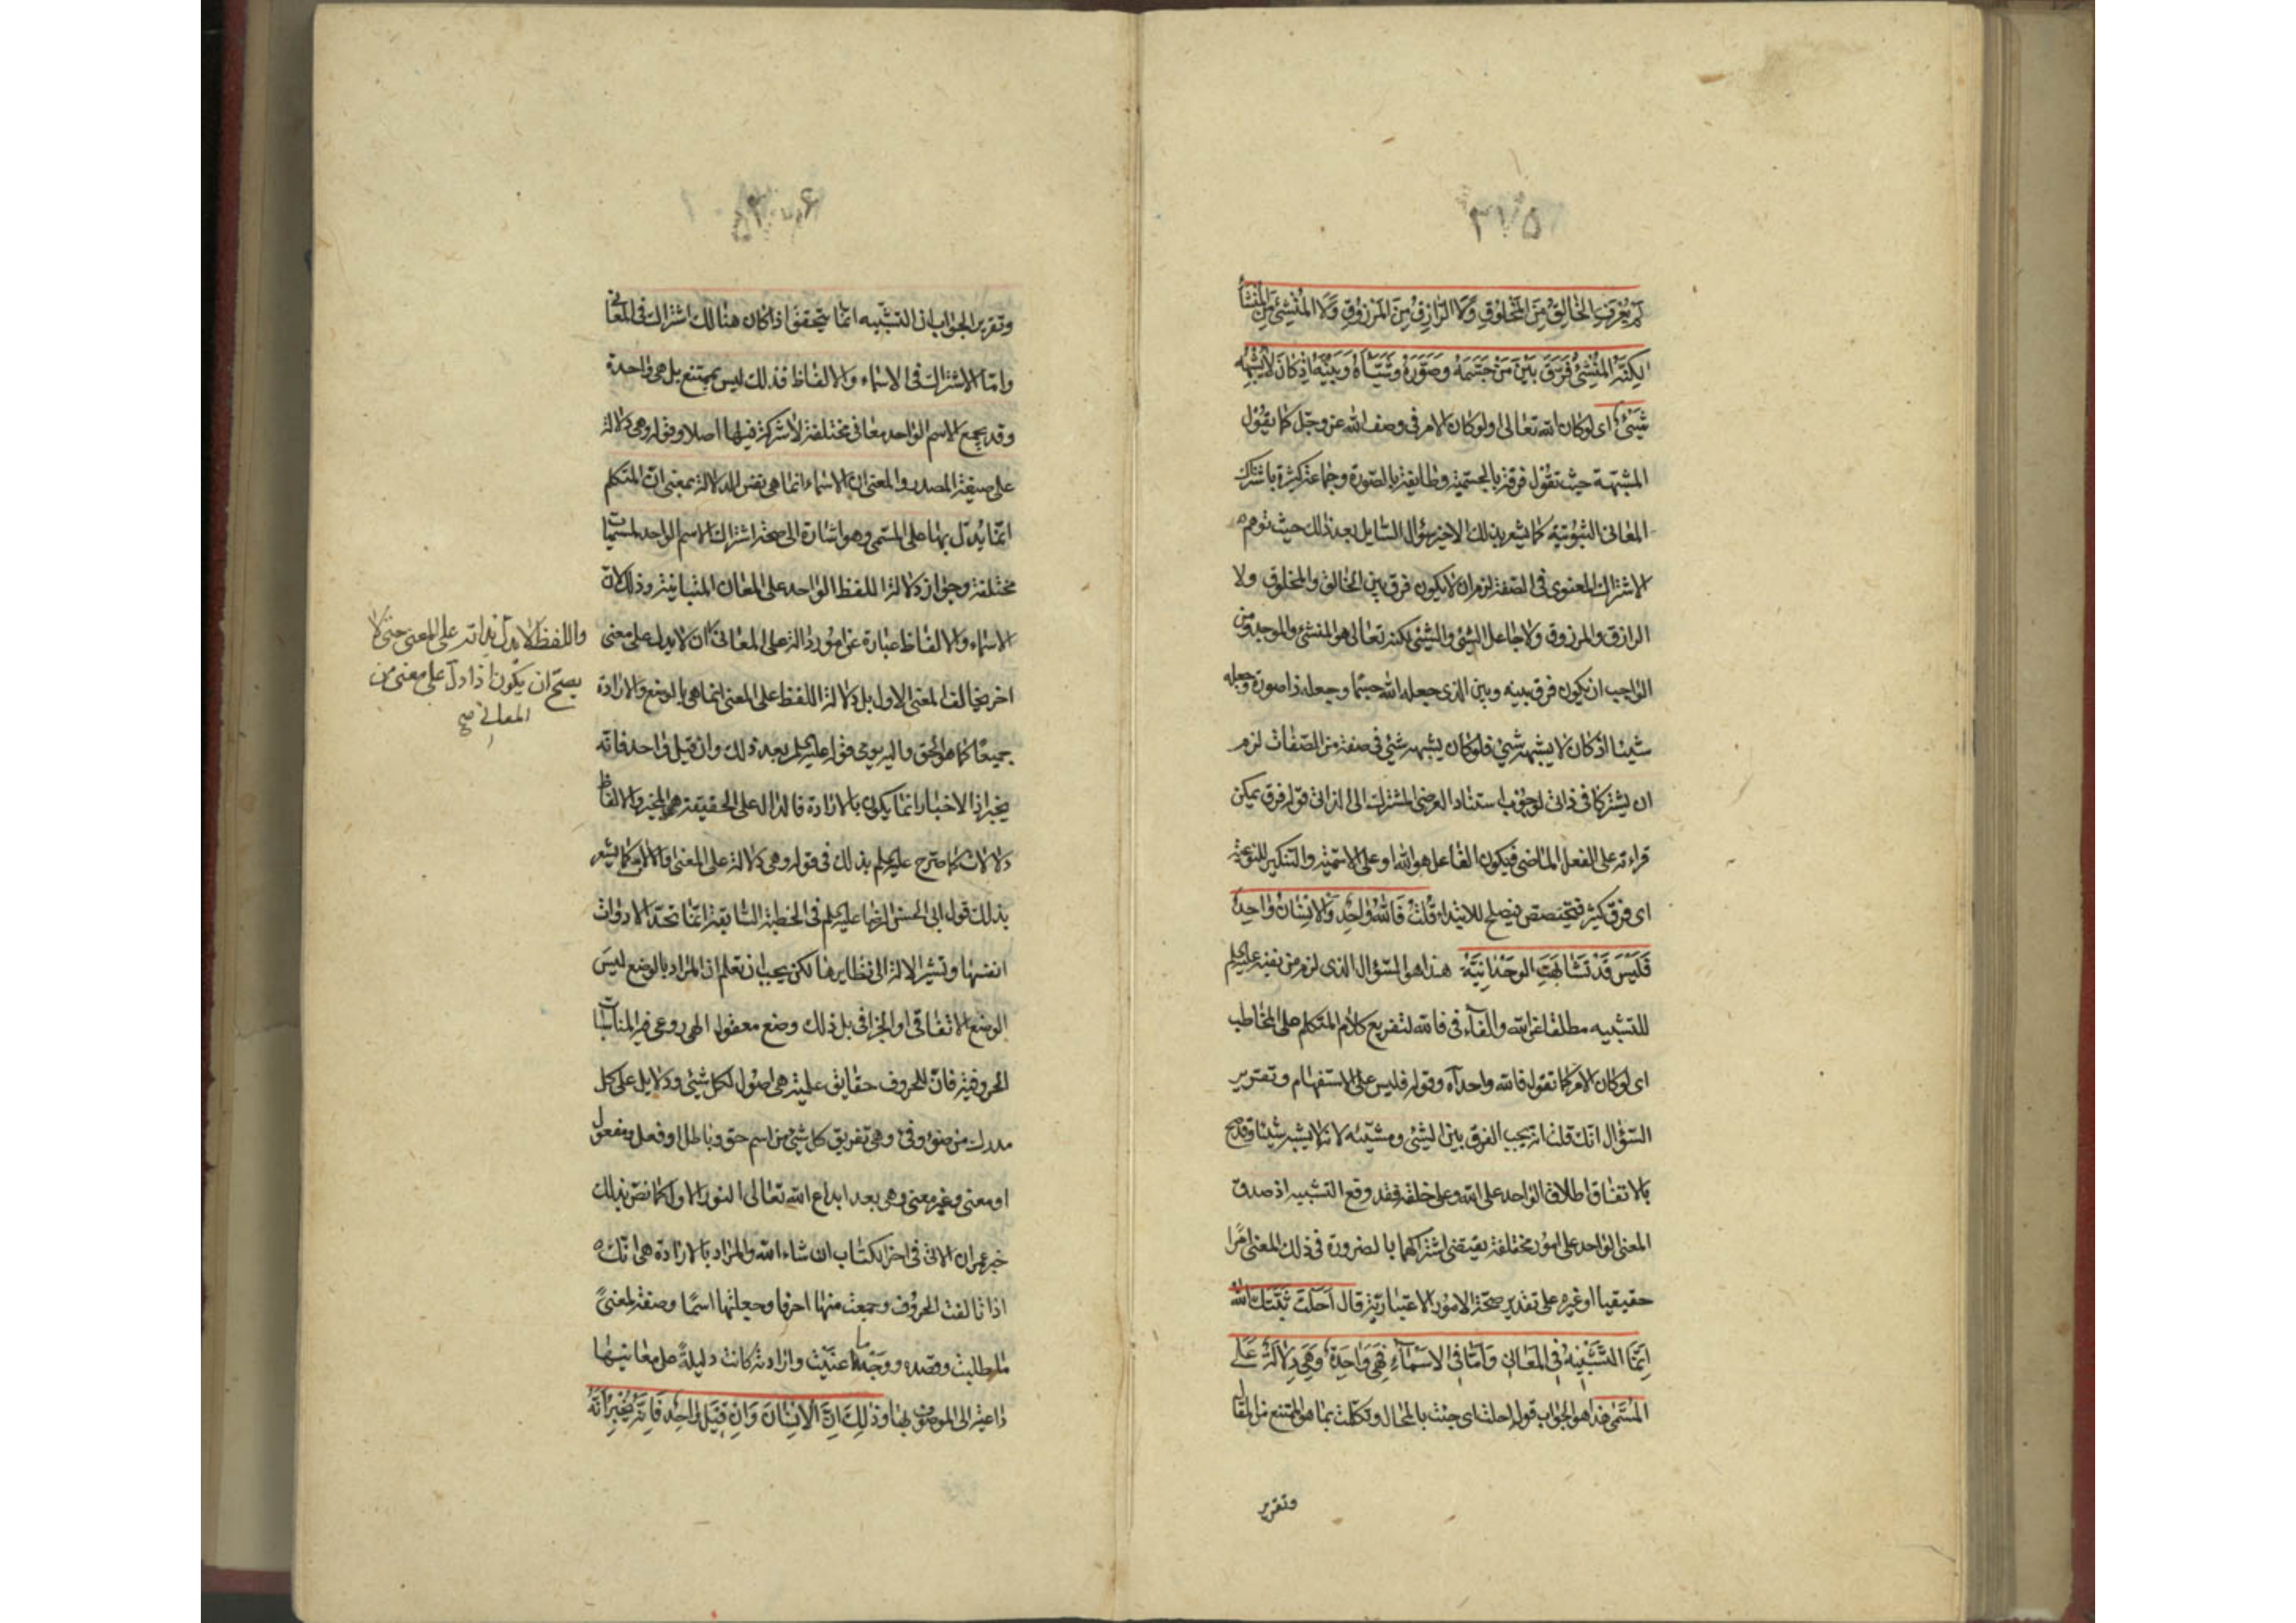 ٣١٥
لم يُعْرَفِ الخالِقُ مِنَ المَخْلُوقِ وَلَا الرّازِقُ مِنَ المَرْزُوقِ وَلَا المُنْشِئُ مِنَ المُنْشَأ
لكِنَّهُ المُنْشِئُ فَرَقَ بَيْنَ مَنْ جَسَّمَهُ وصَوَّرَهُ وشَيَّأَهُ وَبَيْنَهُ اِذ كانَ لا يُشْبِهُهُ
شَيْئٌ اى لو كان الله تعالى او لو كان الامر فى وصف الله عز وجل كما يقول
المشبّهة حيث تقول فرقة بالجسمية وطايفة بالصورة وجماعة كثيرة باشتراك
المعانى الثبوتية كما يشعر بذلك الاخير سؤال السايل بعد ذلك حيث توهم
الاشتراك المعنوى فى الصفة لزم ان لا يكون فرق بين الخالق والمخلوق ولا
الرازق والمرزوق ولا جاعل الشئ والشئ لكنه تعالى هو المنشئ والموجد ومن
الواجب ان يكون فرق بينه وبين الذى جعله الله جسما وجعله ذا صورة وجعله
شيئا اذ كان لا يشبهه شئ فلو كان يشبهه شئ فى صفة من الصفات لزم
ان يشتركا فى ذاتى لوجوب استناد العرضى المشترك الى الذاتى قوله فرق يمكن
قراءته على الفعل الماضى فيكون الفاعل هو الله او على الاسمية والتنكير للنوعية
اى فرق كثير فيتخصص فيصلح للابتداء قُلْتُ فَاللهُ وٰاحِدٌ وَالاِنسٰانُ وٰاحِدٌ
فَلَيْسَ قَدْ تَشٰابَهَتِ الوَحْدٰانِيَّةُ هذا هو السؤال الذى لزم من نفيه عليه السلم
للتشبيه مطلقا عن الله والفاء فى فالله لتفريع كلام المتكلم على المخاطب
اى لو كان الامر كما تقول فالله واحد آه وقوله فليس على الاستفهام وتقرير
السؤال انك قلت انه يجب الفرق بين الشئ ومشيّئه لانه لا يشبه شيئا وقد صح
بالاتفاق اطلاق الواحد على الله وعلى خلقه فقد وقع التشبيه اذ صدق
المعنى الواحد على امور مختلفة يقتضى اشتراكهما بالضرورة فى ذلك المعنى امرا
حقيقيا او غيره على تقدير صحة الامور الاعتبارية قال اَحَلْتَ ثَبَّتَكَ اللهُ
اِنَّمَا التَّشْبِيْهُ فِى المَعانِى وَاَمّٰا فِى الاَسْمٰآءِ فَهِىَ وٰاحِدَةٌ وَهِىَ دِلٰالَةٌ عَلَى
المُسَمّٰى هذا هو الجواب قوله احلت اى جئت بالمحال وتكلمت بما هو الممتنع من المقال
وتقرير
وتقرير الجواب ان التشبيه انما يتحقق اذا كان هنالك اشتراك فى المعانى
واما الاشتراك فى الاسماء والالفاظ فذلك ليس بممتنع بل هى واحدة
وقد يجمع الاسم الواحد معانى مختلفة لا شركة فيها اصلا وقوله وهى دلالة
على صيغة المصدر والمعنى ان الاسماء انما هى نفس الدلالة بمعنى ان المتكلم
انما يُدلّ بها على المسمى وهو اشارة الى صحة اشتراك الاسم الواحد لمسميات
مختلفة وجواز دلالة اللفظ الواحد على المعانى المتباينة وذلك لان
الاسماء والالفاظ عبارة عن امور دالة على المعانى ان لا يدل على معنى
اخر يخالف المعنى الاول بل دلالة اللفظ على المعنى انما هى بالوضع والارادة
جميعا كما هو الحق واليه يومى قوله عليه السلم بعد ذلك وان قيل واحد فانه
يخبر اذ الاخبار انما يكون بالارادة فالدال على الحقيقة هو المخبر والالفاظ
دلالات كما صرح عليه السلم بذلك فى قوله وهى دلالة على المعنى كما يشعر
بذلك قول ابى الحسن الرضا عليه السلم فى الخطبة السابقة انما تحدّ الادوات
انفسها وتشير الالة الى نظايرها لكن يجب ان تعلم ان المراد بالوضع ليس
الوضع الاتفاقى او الجزافى بل ذلك وضع معقول الهى روعى فيه المناسبات
الحروفية فان للحروف حقايق علمية هى اصول لكل شئ ودلايل على كل
مدرك وهى تفريق كل شئ من اسم حق وباطل او فعل ومفعول
او معنى وغير معنى وهى بعد ابداع الله تعالى النور الاول كما نص بذلك
خبر عمران الاتى فى اخر الكتاب ان شاء الله والمراد بالارادة هى انك
اذا تالفت الحروف وجمعت منها احرفا وجعلتها اسمًا وصفة لمعنى
ما طلبت وقصدت ووجه ما عنيت وارادته كانت دليلة على معانيها
داعية الى الموصوف بها وَذٰلِكَ اَنَّ الاِنسٰانَ وَاِن قِيْلَ وٰاحِدٌ فَاِنَّهُ يُخْبَرُ اَنَّهُ
واللفظ لا يدل بذاته على المعنى حتى لا
يصح ان يكون اذا دل على معنى من
المعانى صح